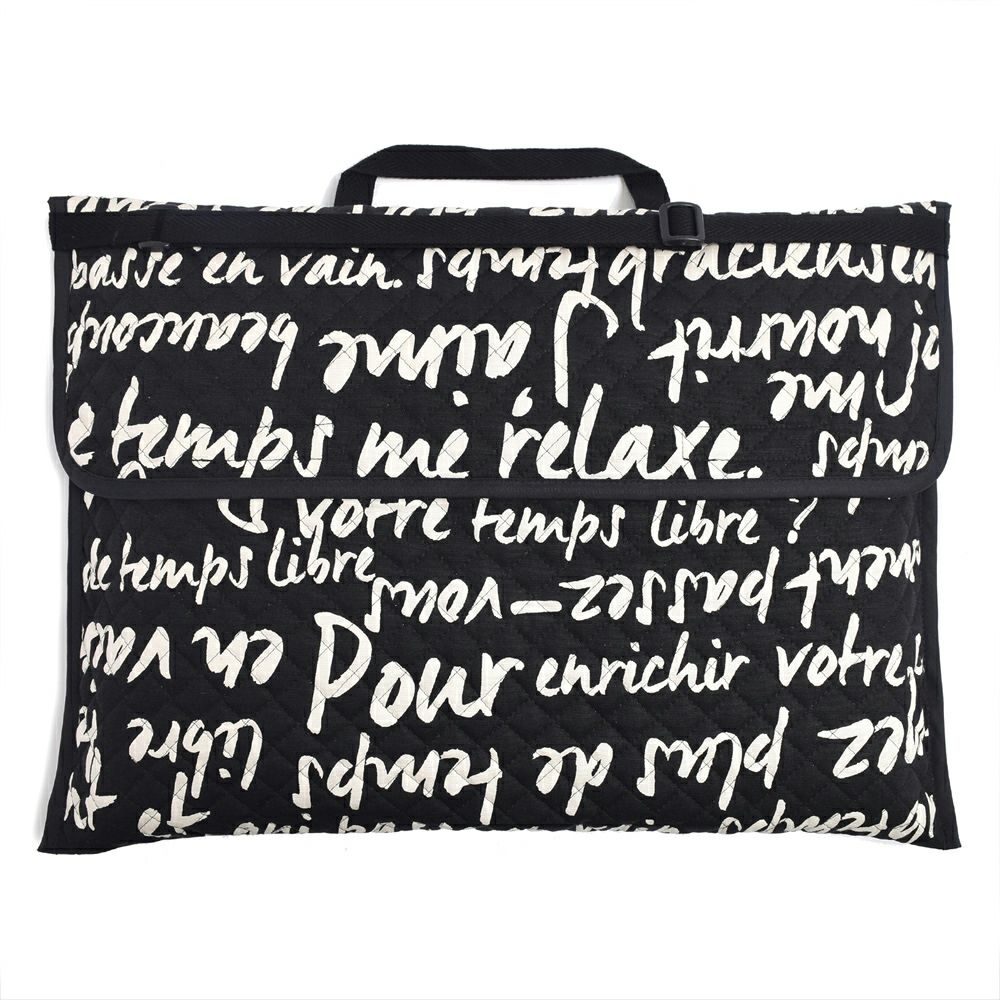 passe en vain. temps gracieusement
beaucoup J'aime nourrit
me
temps me relaxe. temps
votre temps libre ?
de temps libre
passez-vous
en Pour enrichir votre
libre temps de plus
et qui